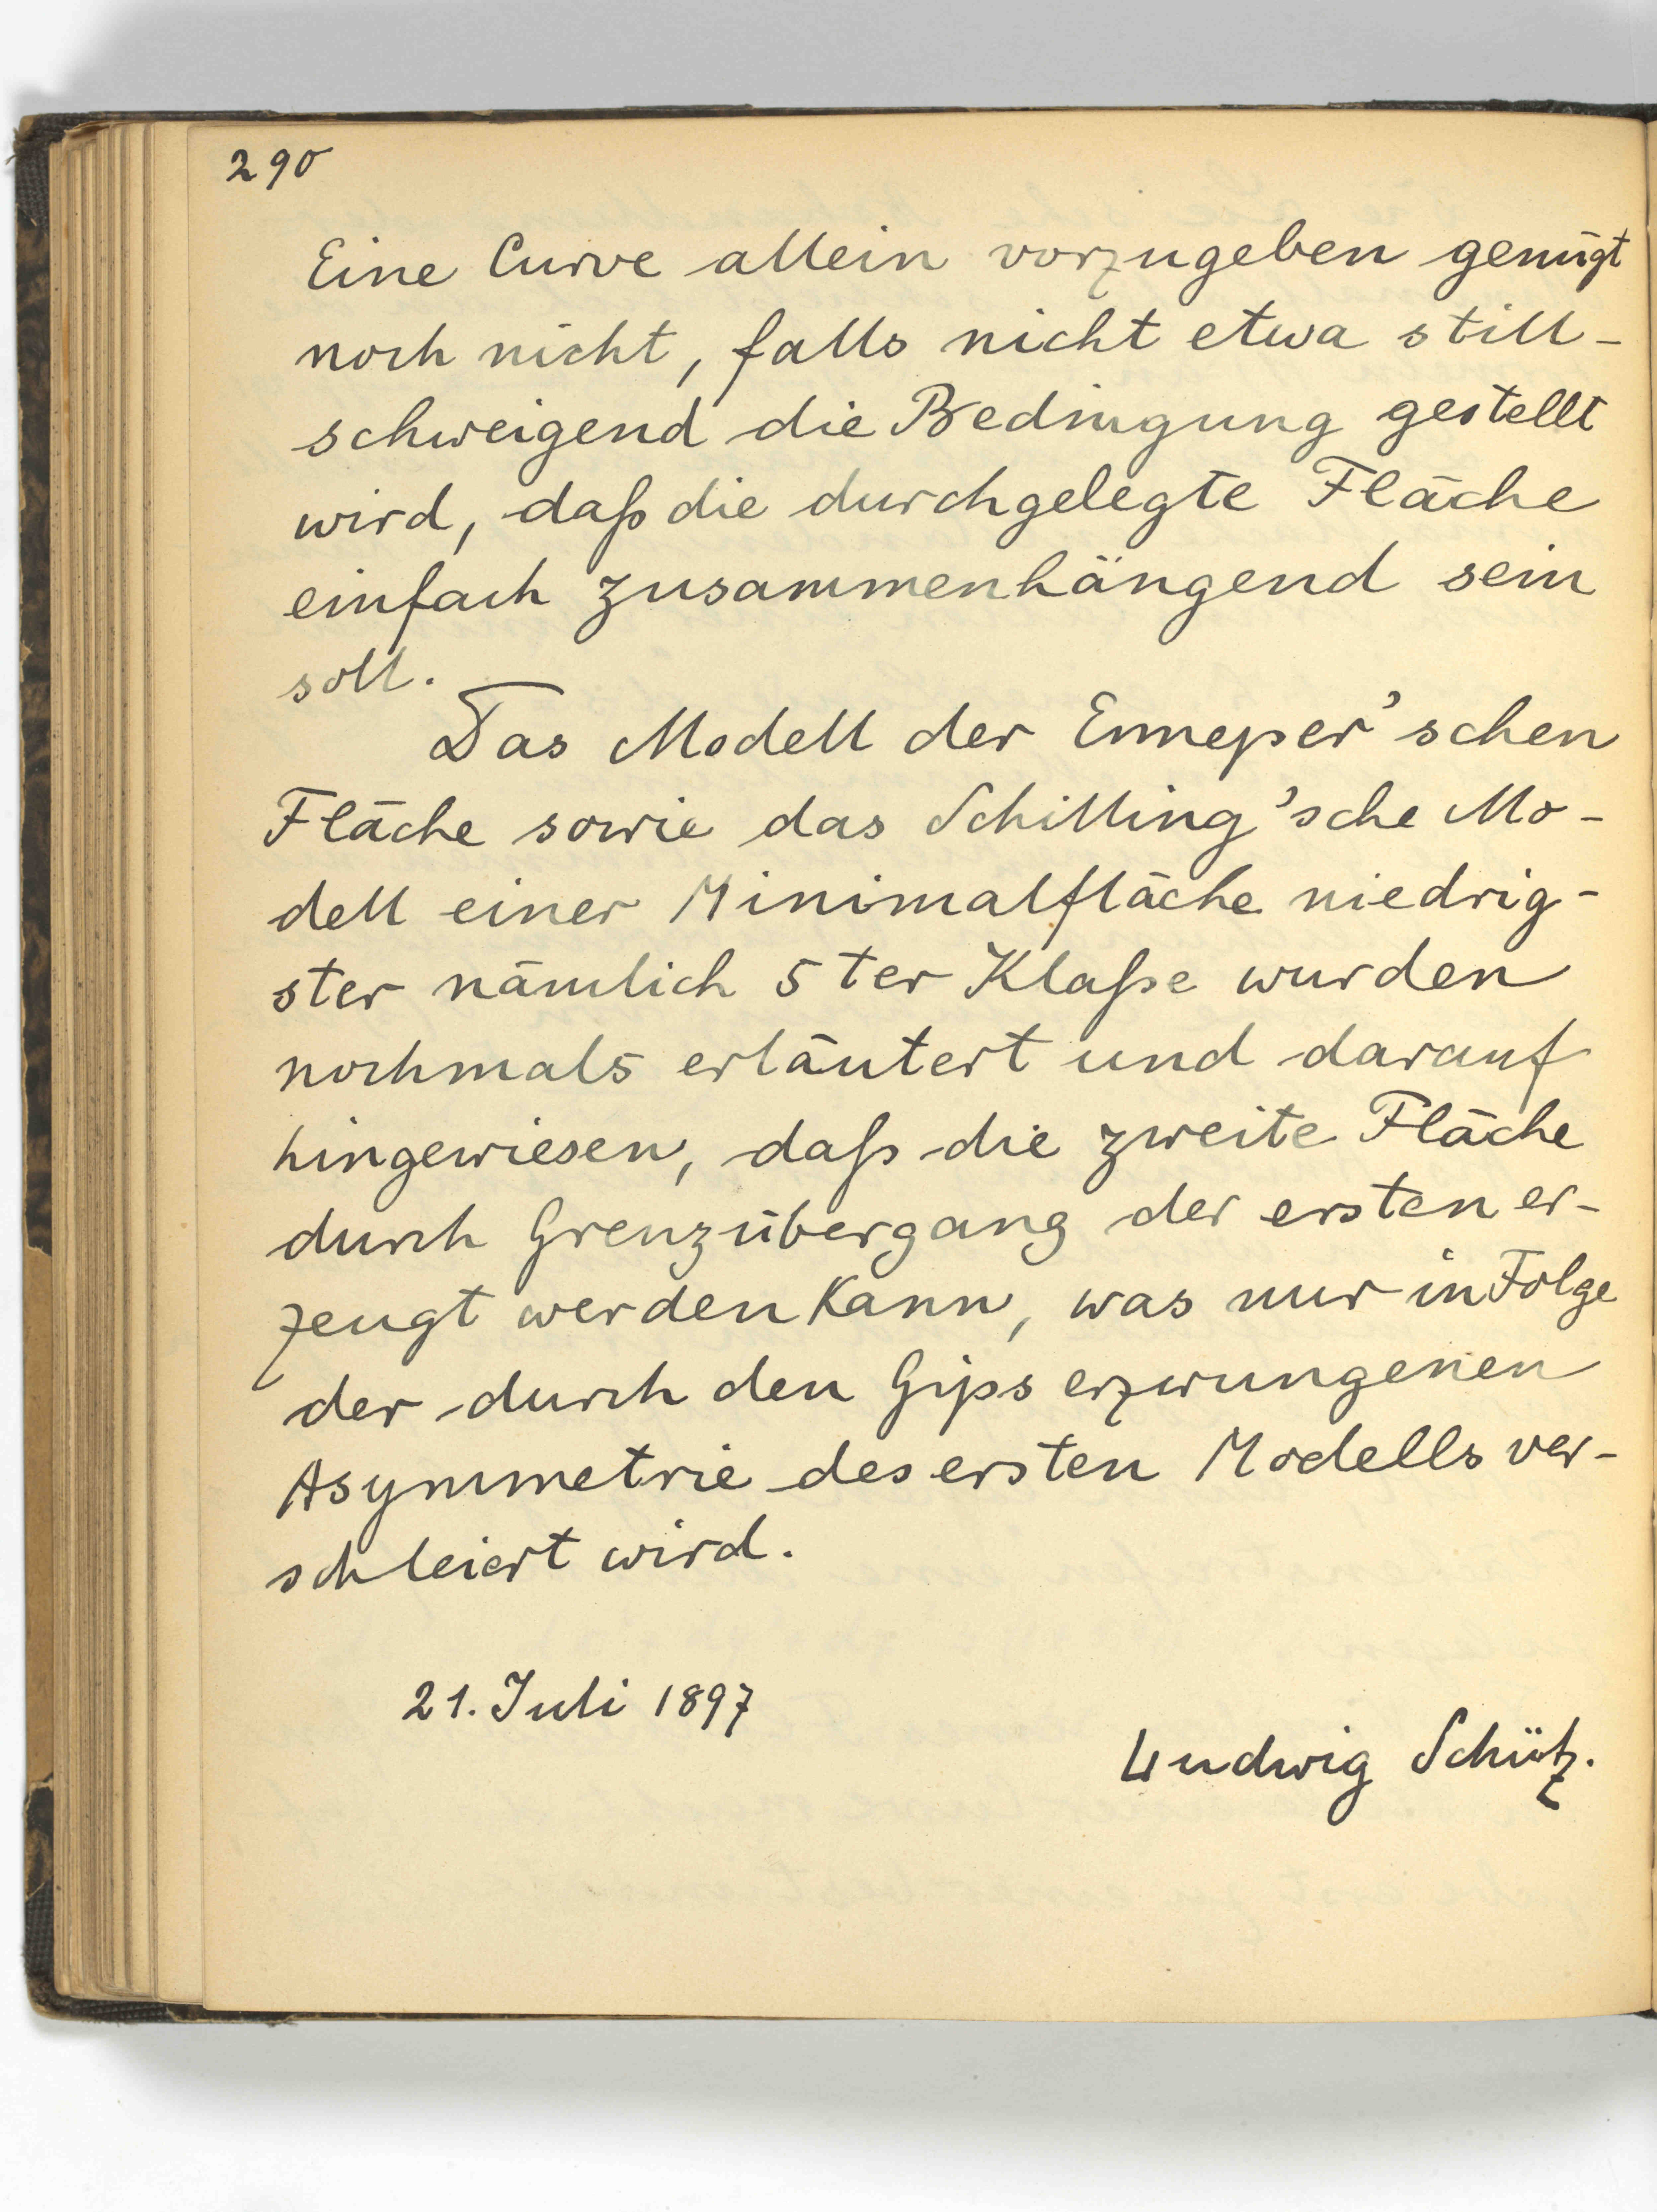 290
Eine Curve allein vorzugeben genügt
noch nicht, falls nicht etwa still-
schweigend die Bedingung gestellt
wird, daß die durchgelegte Fläche
einfach zusammenhängend sein
soll.
Das Modell der Enneper'schen
Fläche sowie das Schilling'sche Mo-
dell einer Minimalfläche niedrig-
ster nämlich 5ter Klaße wurden
nochmals erläutert und darauf
hingewiesen, daß die zweite Fläche
durch Grenzübergang der ersten er-
zeugt werden kann, was nur in Folge
der durch den Gips erzwungenen
Asymmetrie des ersten Modells ver-
schleiert wird.
21. Juli 1897
Ludwig Schütz.